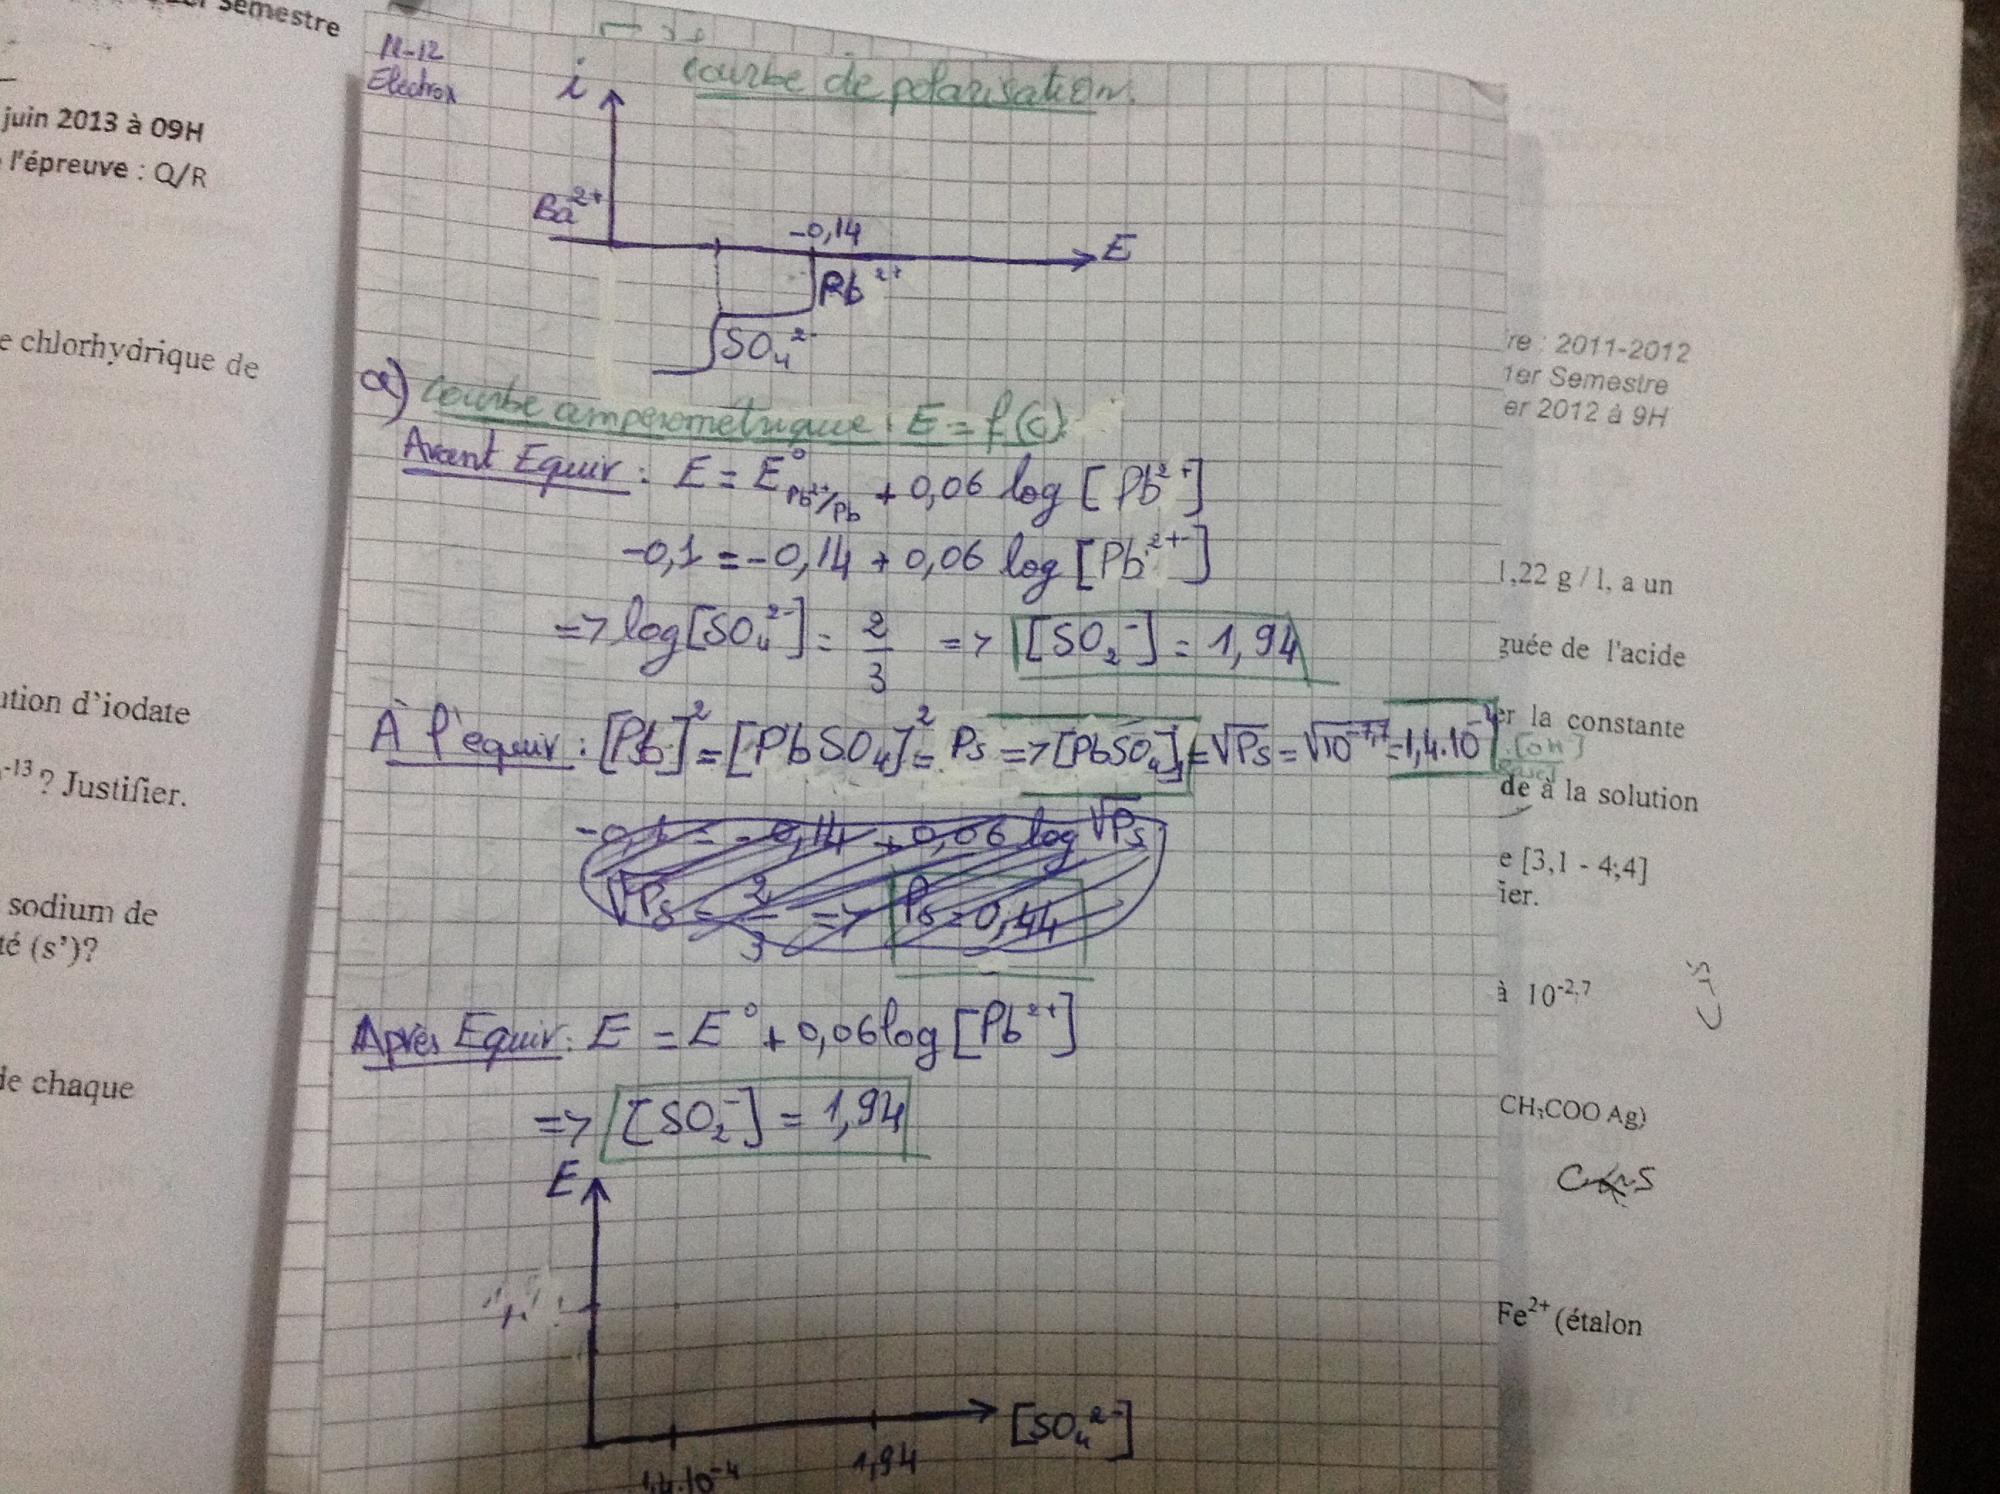 Semestre
juin 2013 à 09H
l'épreuve : Q/R
e chlorhydrique de
d'iodate
-13 ? Justifier.
sodium de
té (s')?
de chaque
11-12
Electrox
courbe de polarisation.
i
Ba2+
-0,14
E
Pb2+
SO4 2-
a) Courbe amperométrique : E = f(c).
Avant Equiv : E = E° Pb2+/Pb + 0,06 log [Pb2+]
-0,1 = -0,14 + 0,06 log [Pb2+]
=> log[SO4 2-] = 2/3 => [SO2-] = 1,94
À l'équiv : [Pb]2 = [PbSO4]2 = Ps => [PbSO4] = √Ps = √10-7,7 = 1,4.10-4
-0,1 = -0,14 + 0,06 log √Ps
√Ps = 2/3 => Ps = 0,44
Après Equiv : E = E° + 0,06 log [Pb2+]
=> [SO2-] = 1,94
E
[SO4 2-]
1,4.10-4
1,94
re : 2011-2012
1er Semestre
er 2012 à 9H
1,22 g / l, a un
guée de l'acide
er la constante
[OH]
de à la solution
e [3,1 - 4;4]
ier.
à 10-2,7
CH3COO Ag)
Fe2+ (étalon